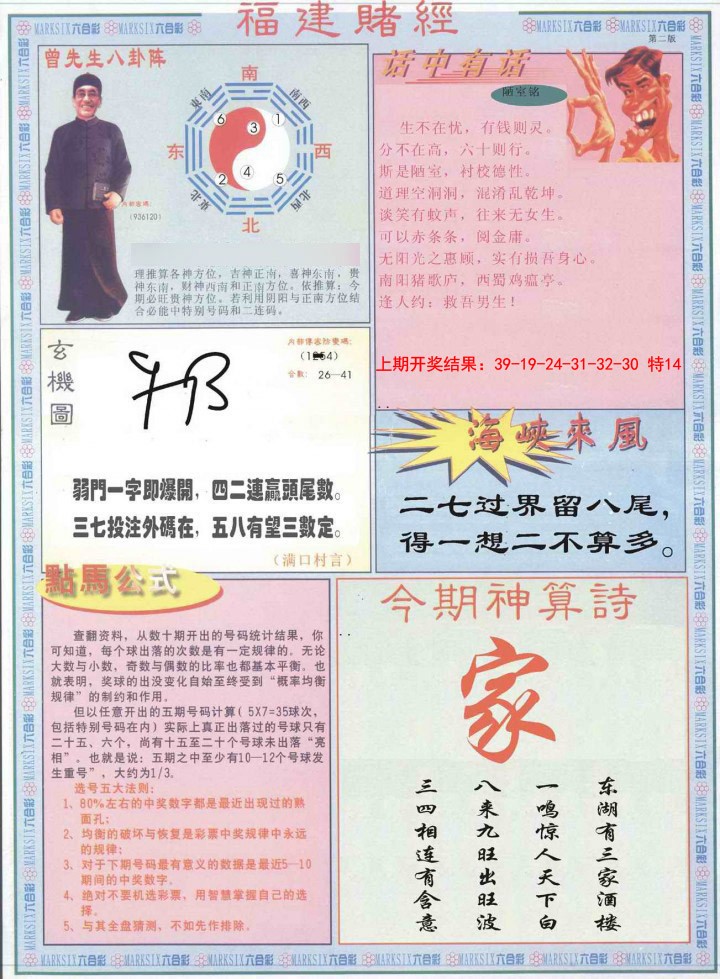 福建賭經
第二版
MARKSIX六合彩
曾先生八卦阵
南
東南
南西
6
3
1
东
西
2
4
5
東北
北西
北
(936120)
理推算各神方位，吉神正南，喜神东南，贵
神东南，财神西南和正南方位。依推算：今
期必旺贵神方位，若利用阴阳与正南方位结
合必能中特别号码和二连码。
话中有话
陋室铭
生不在忧，有钱则灵。
分不在高，六十则行。
斯是陋室，衬校德性。
道理空洞洞，混淆乱乾坤。
谈笑有蚊声，往来无女生。
可以赤条条，阅金庸。
无阳光之惠顾，实有损吾身心。
南阳猪歌庐，西蜀鸡瘟亭。
逢人约：救吾男生！
上期开奖结果：39-19-24-31-32-30 特14
玄機圖
合数： 26—41
弱門一字即爆開，四二連贏頭尾數。
三七投注外碼在，五八有望三數定。
（满口村言）
海峽來風
二七过界留八尾，
得一想二不算多。
點馬公式
查翻资料，从数十期开出的号码统计结果，你
可知道，每个球出落的次数是有一定规律的。无论
大数与小数，奇数与偶数的比率也都基本平衡。也
就表明，奖球的出没变化自始至终受到“概率均衡
规律”的制约和作用。
但以任意开出的五期号码计算（5X7=35球次，
包括特别号码在内）实际上真正出落过的号球只有
二十五、六个，尚有十五至二十个号球未出落“亮
相”。也就是说：五期之中至少有10—12个号球发
生重号”，大约为1/3。
选号五大法则：
1、80%左右的中奖数字都是最近出现过的熟
面孔；
2、均衡的破坏与恢复是彩票中奖规律中永远
的规律；
3、对于下期号码最有意义的数据是最近5—10
期间的中奖数字。
4、绝对不要机选彩票，用智慧掌握自己的选
择。
5、与其全盘猜测，不如先作排除。
今期神算詩
家
东湖有三家酒楼
一鸣惊人天下白
八来九旺出旺波
三四相连有含意